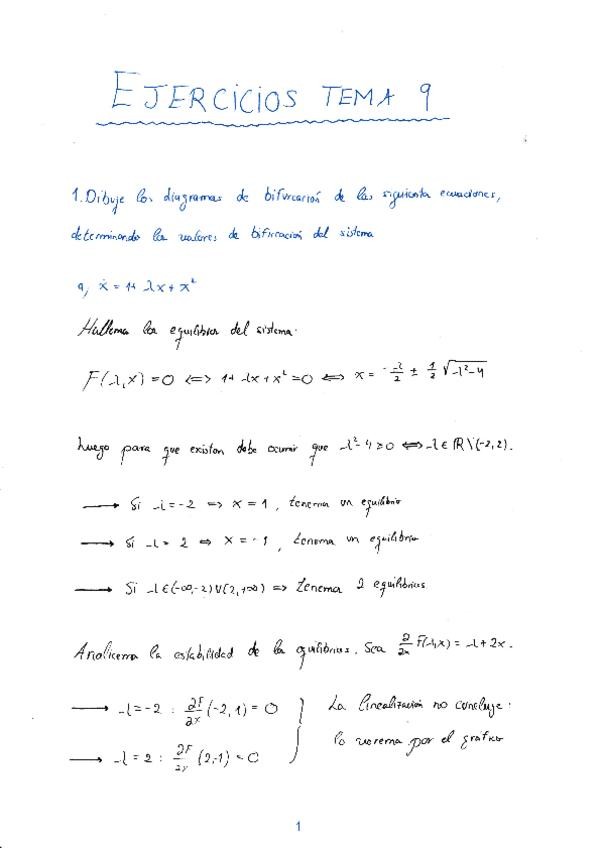 EJERCICIOS TEMA 9
1. Dibuje los diagramas de bifurcación de las siguientes ecuaciones,
determinando los valores de bifurcación del sistema
a) ẋ = 1+ λx + x²
Hallemos los equilibrios del sistema.
F(λ,x) = 0 <=> 1+ λx + x² = 0 <=> x = -λ/2 ± 1/2 √λ²-4
Luego para que existan debe ocurrir que λ²-4 ≥ 0 <=> λ ∈ ℝ\(-2,2).
→ Si λ = -2 => x = 1, tenemos un equilibrio
→ Si λ = 2 => x = -1, tenemos un equilibrio
→ Si λ ∈ (-∞,-2) ∪ (2,+∞) => tenemos 2 equilibrios
Analicemos la estabilidad de los equilibrios. Sea ∂/∂x F(λ,x) = λ + 2x.
→ λ = -2 : ∂F/∂x (-2, 1) = 0 } La linealización no concluye:
→ λ = 2 : ∂F/∂x (2,-1) = 0 lo veremos por el gráfico
1